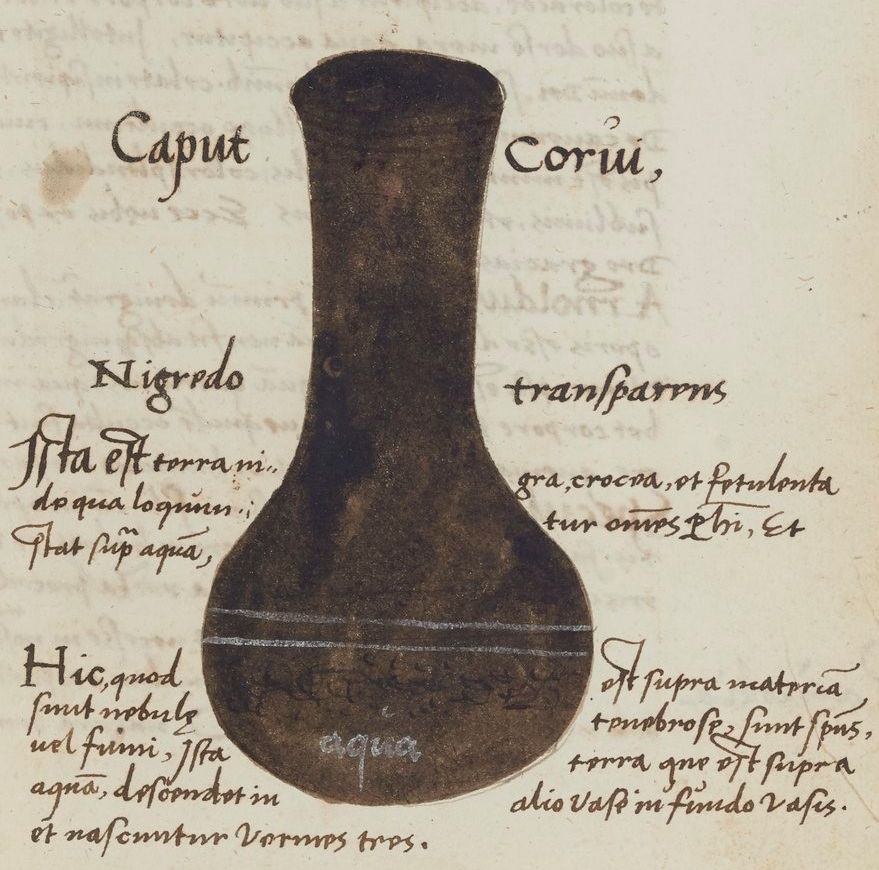 Caput Corui,
Nigredo transparens
Ista est terra ni.. gra, crocea, et fetulenta
de qua loquun.. tur om̄es Ph̄i, Et
stat sup̄ aquā,
Hic, quod est supra materiā
sunt nebulę tenebrosę, sunt sp̄us,
uel fumi, Ista terra que est supra
aquā, descendet in alio vase in fundo vasis.
et nascuntur vermes tres.
aqua